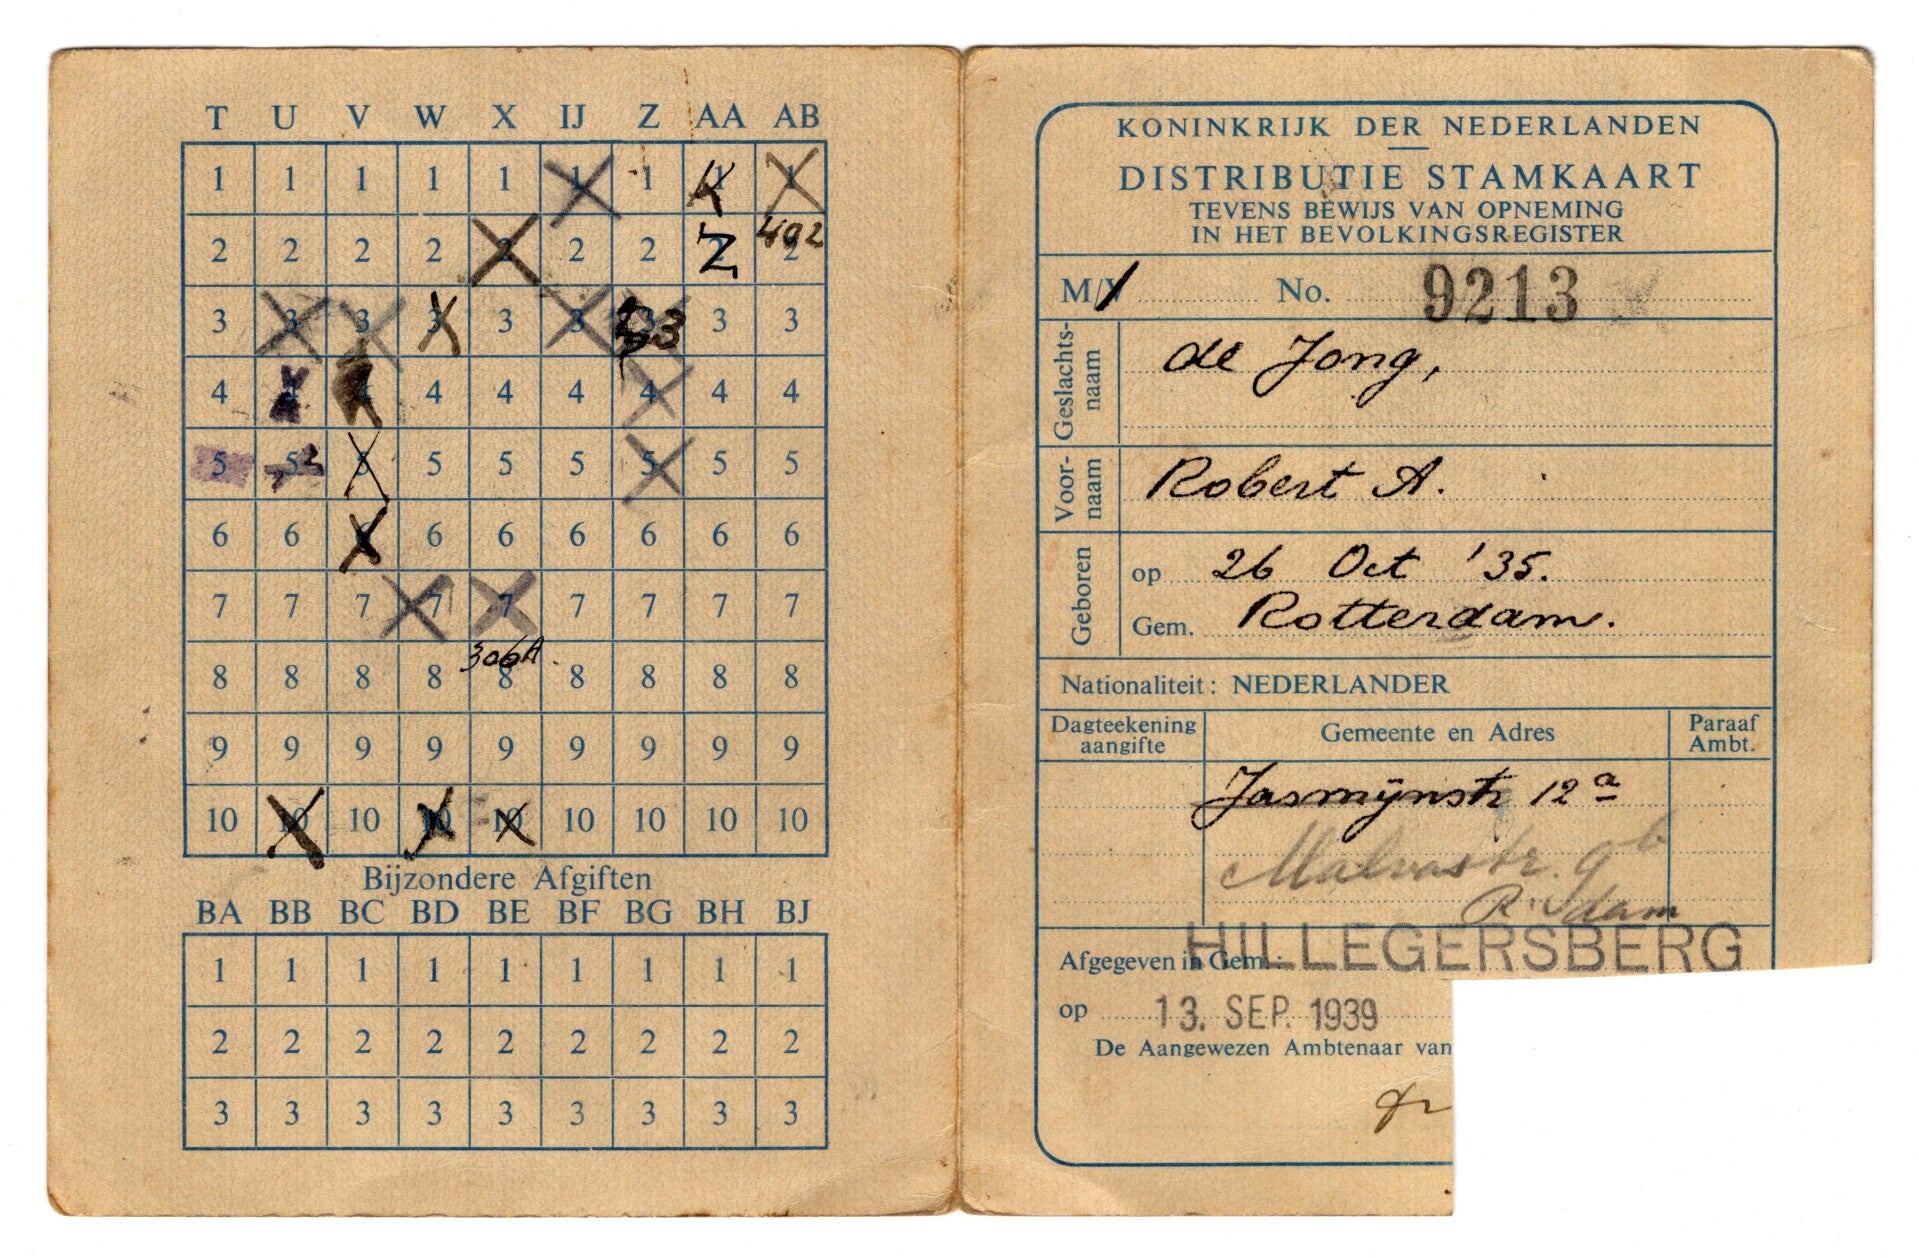 T U V W X IJ Z AA AB
1 1 1 1 1 1 1 K 1
2 2 2 2 2 2 2 Z 492 2
3 3 3 3 3 3 3 3 3
4 4 4 4 4 4 4 4
5 5 5 5 5 5 5 5 5
6 6 6 6 6 6 6 6 6
7 7 7 7 7 7 7 7 7
306A
8 8 8 8 8 8 8 8 8
9 9 9 9 9 9 9 9 9
10 10 10 10 10 10 10 10 10
Bijzondere Afgiften
BA BB BC BD BE BF BG BH BJ
1 1 1 1 1 1 1 1 1
2 2 2 2 2 2 2 2 2
3 3 3 3 3 3 3 3 3
KONINKRIJK DER NEDERLANDEN
DISTRIBUTIE STAMKAART
TEVENS BEWIJS VAN OPNEMING
IN HET BEVOLKINGSREGISTER
M/V No. 9213
Geslachts-
naam
de Jong,
Voor-
naam
Robert A.
Geboren
op 26 Oct '35.
Gem. Rotterdam.
Nationaliteit: NEDERLANDER
Dagteekening
aangifte
Gemeente en Adres
Paraaf
Ambt.
Jasmijnstr 12a
Malvastr. 9b
R'dam
Afgegeven in Gem.: HILLEGERSBERG
op 13. SEP. 1939
De Aangewezen Ambtenaar van